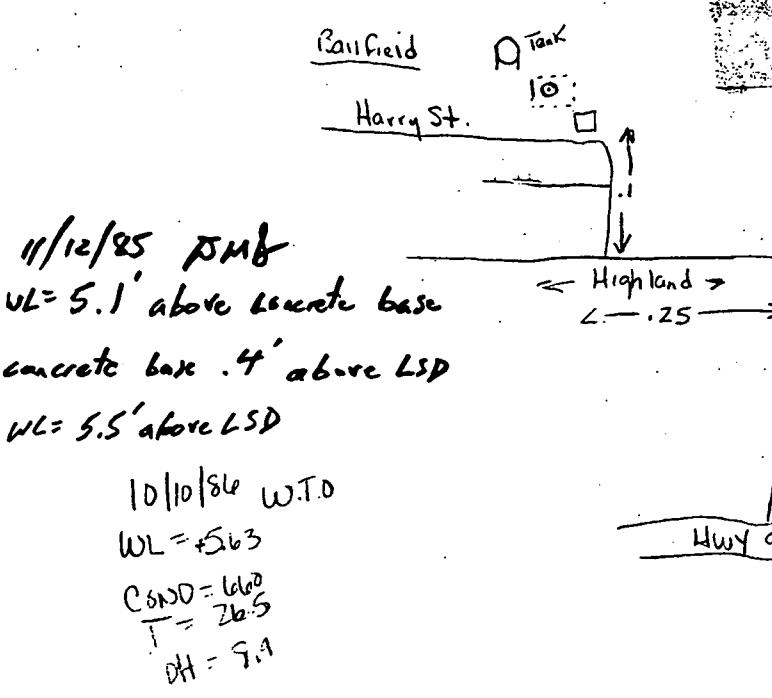 Ballfield
Tank
Harry St.
.1
Highland
.25
11/12/85
WL= 5.1' above concrete base
concrete base .4' above LSD
WL= 5.5' above LSD
Hwy
10/10/86 W.T.O
WL = +5.63
COND = 660
T = 26.5
pH =